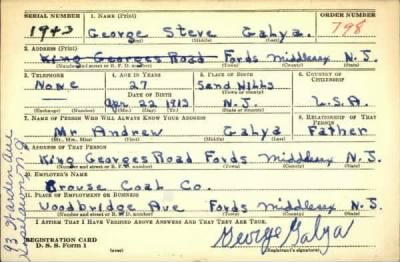 SERIAL NUMBER 1. NAME (Print) ORDER NUMBER
1943 George Steve Galya. 798
(First) (Middle) (Last)
2. ADDRESS (Print)
King Georges Road Fords Middlesex N.J.
(Number and street or R. F. D. number) (Town) (County) (State)
3. TELEPHONE 4. AGE IN YEARS 5. PLACE OF BIRTH 6. COUNTRY OF CITIZENSHIP
None 27 Sand Hills
DATE OF BIRTH (Town or county)
Apr 22 1913 N.J. U.S.A.
(Mo.) (Day) (Yr.) (State or country)
7. NAME OF PERSON WHO WILL ALWAYS KNOW YOUR ADDRESS 8. RELATIONSHIP OF THAT PERSON
Mr Andrew Galya Father
(Mr., Mrs., Miss) (First) (Middle) (Last)
9. ADDRESS OF THAT PERSON
King Georges Road Fords Middlesex N.J.
(Number and street or R. F. D. number) (Town) (County) (State)
10. EMPLOYER'S NAME
Coal Co.
11. PLACE OF EMPLOYMENT OR BUSINESS
Woodbridge Ave Fords Middlesex N.J.
(Number and street or R. F. D. number) (Town) (County) (State)
I AFFIRM THAT I HAVE VERIFIED ABOVE ANSWERS AND THAT THEY ARE TRUE.
REGISTRATION CARD George Galya
D. S. S. Form 1 (over) (Registrant's signature)
93 Warden Ave
Iselin N.J.